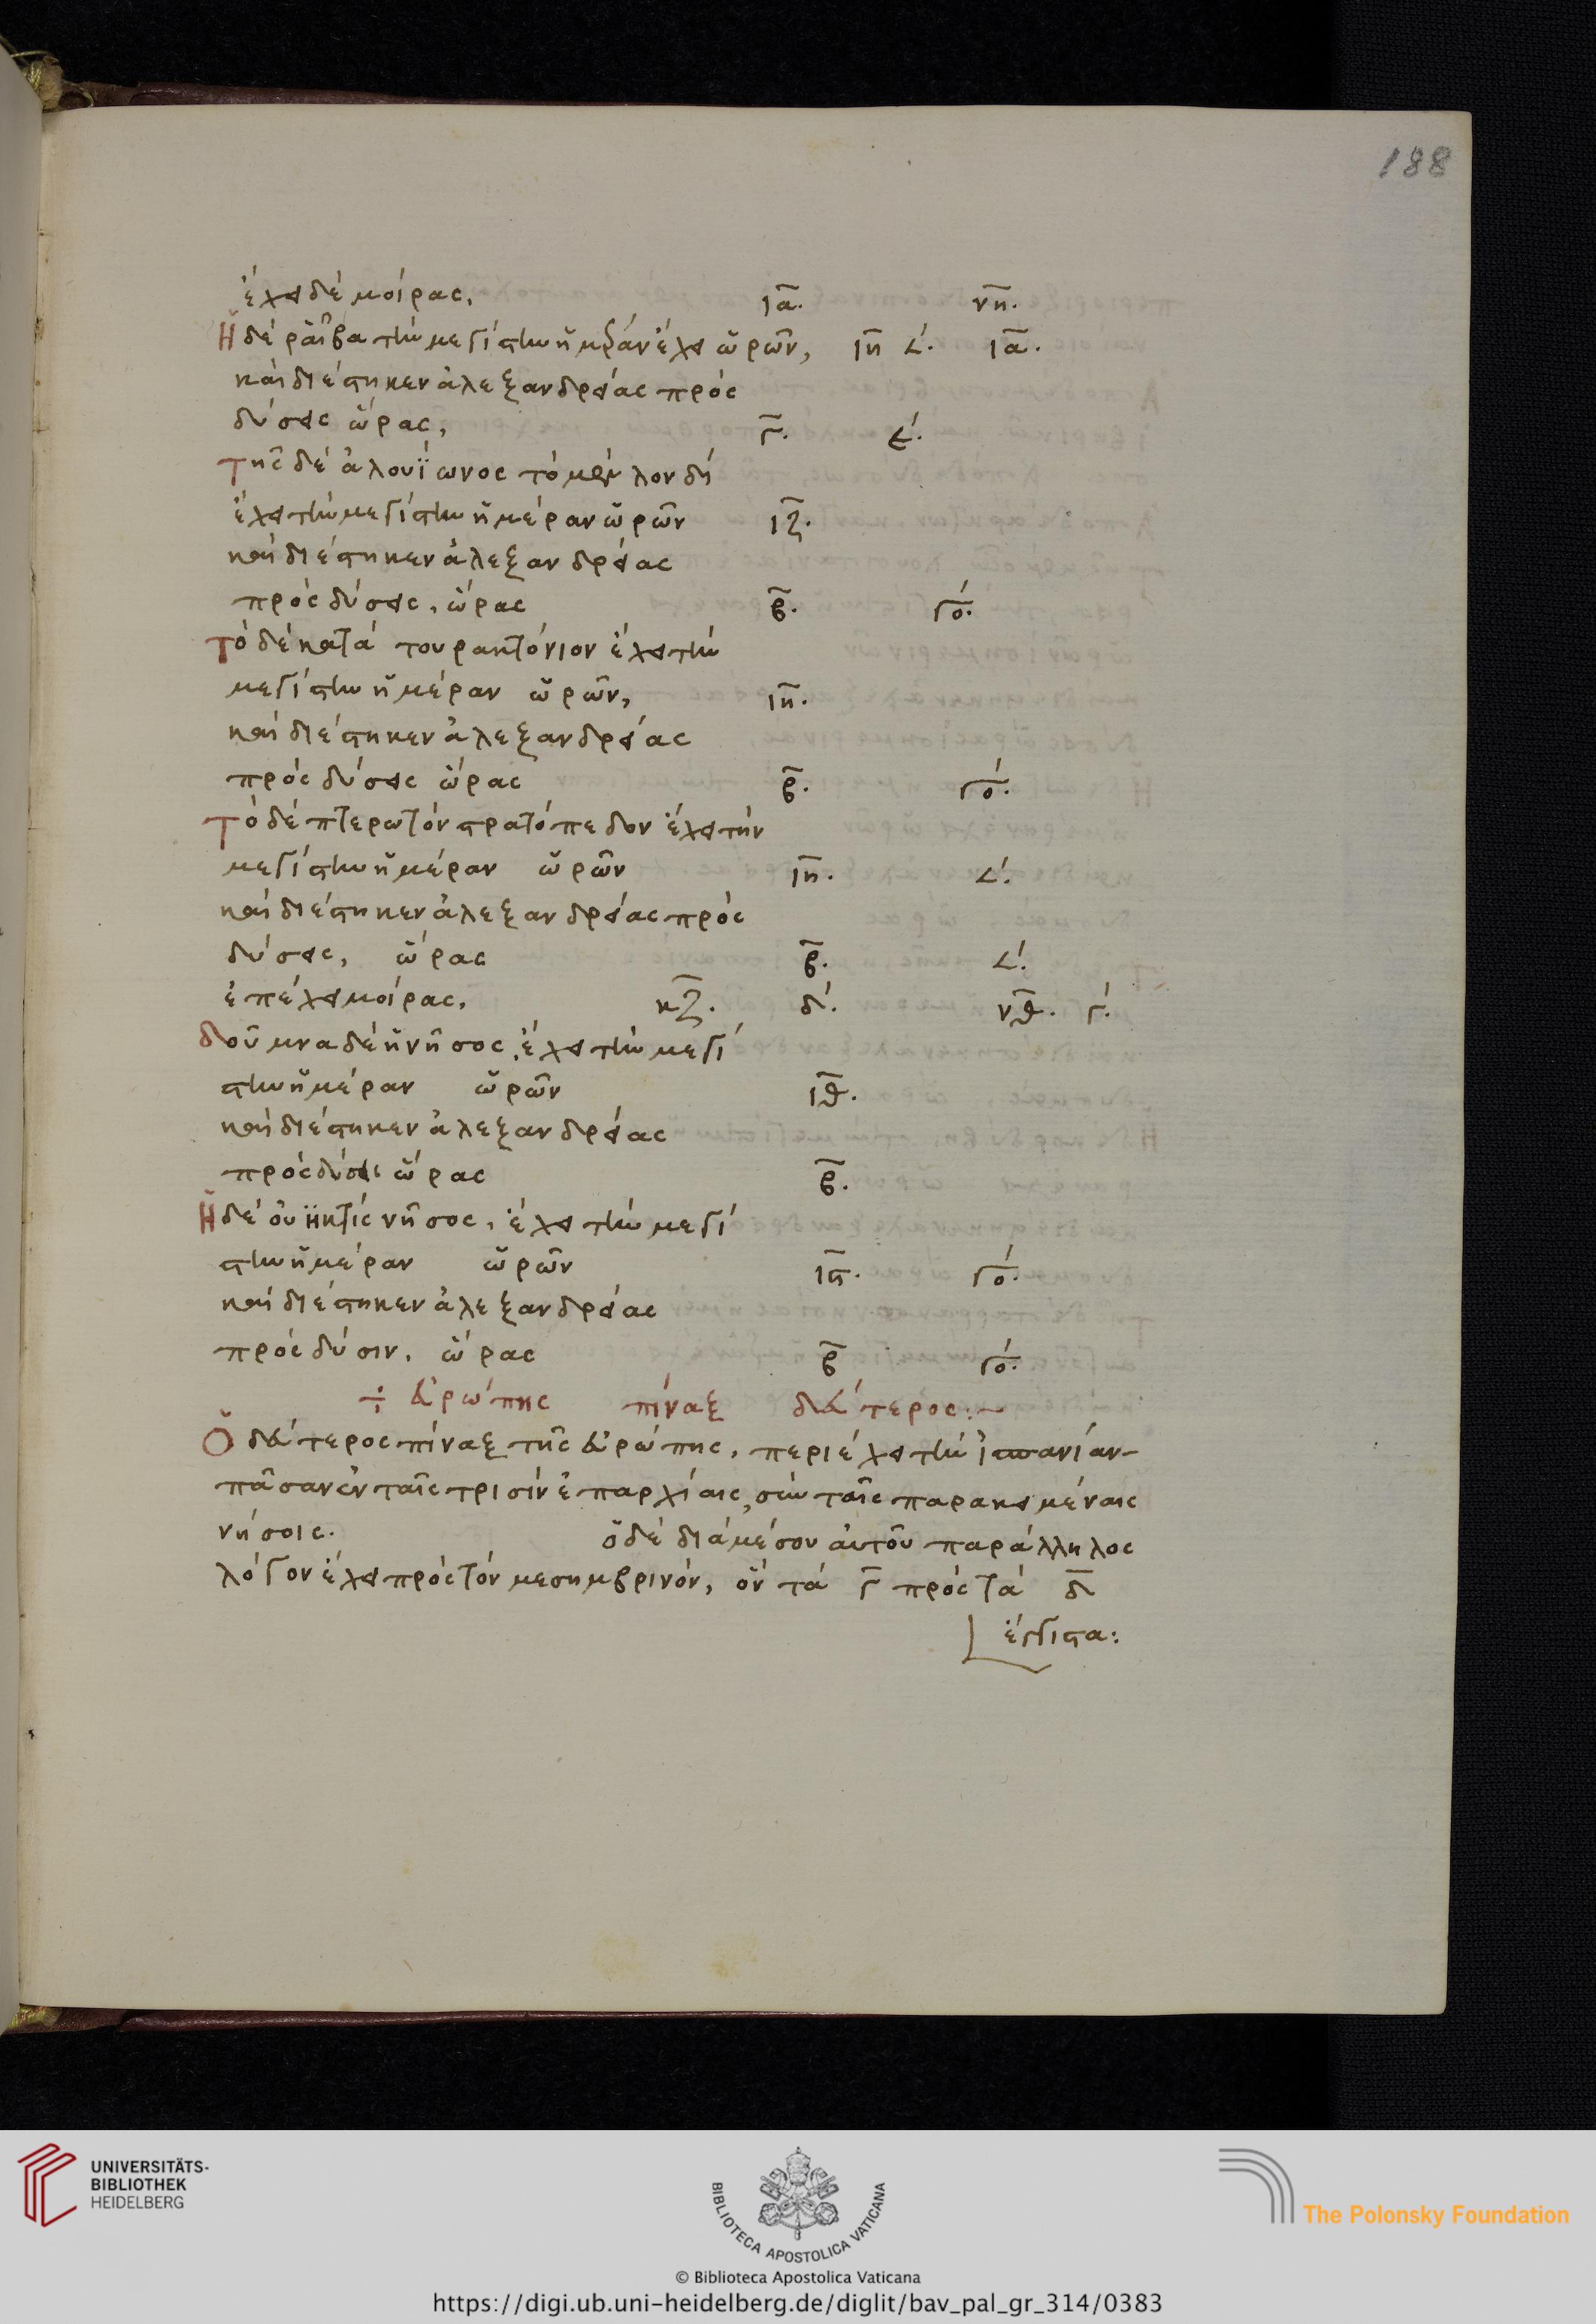 188
ἔχει δὲ μοίρας, ια. νη.
Ἡ δὲ ῥαίβα τὴν μεγίστην ἡμέραν ἔχει ὡρῶν, ιη 𐅵. ια.
καὶ διέστηκεν ἀλεξανδρείας πρὸς
δύσεις ὥρας, γ. ϛ.
Τῆς δὲ ἀλουΐωνος τὸ μὲν λονδή
ἔχει τὴν μεγίστην ἡμέραν ὡρῶν ιζ.
καὶ διέστηκεν ἀλεξανδρείας
πρὸς δύσεις, ὥρας β. γο.
Τὸ δὲ κατά τουρακτόνιον ἔχει τὴν
μεγίστην ἡμέραν ὡρῶν, ιη.
καὶ διέστηκεν ἀλεξανδρείας
πρὸς δύσεις ὥρας β. γο.
Τὸ δὲ πτερωτὸν στρατόπεδον ἔχει τὴν
μεγίστην ἡμέραν ὡρῶν ιη. 𐅵.
καὶ διέστηκεν ἀλεξανδρείας πρὸς
δύσεις, ὥρας β. 𐅵.
ἐπέχει μοίρας, κζ. δ. νθ. γ.
δοῦμνα δὲ ἡ νῆσος, ἔχει τὴν μεγί
στην ἡμέραν ὡρῶν ιθ.
καὶ διέστηκεν ἀλεξανδρείας
πρὸς δύσεις ὥρας β.
Ἡ δὲ οὐηκτὶς νῆσος, ἔχει τὴν μεγί
στην ἡμέραν ὡρῶν ιϛ. γο.
καὶ διέστηκεν ἀλεξανδρείας
πρὸς δύσιν, ὥρας β γο.
÷ Εὐρώπης πίναξ δεύτερος:~
Ὁ δεύτερος πίναξ τῆς εὐρώπης, περιέχει τὴν ἱσπανίαν-
πᾶσαν ἐν ταῖς τρισὶν ἐπαρχίαις, σὺν ταῖς παρακειμέναις
νήσοις. ὁ δὲ διὰ μέσου αὐτοῦ παράλληλος
λόγον ἔχει πρὸς τὸν μεσημβρινόν, ὃν τὰ γ πρὸς τὰ δ
ἔγγιστα:
UNIVERSITÄTS-
BIBLIOTHEK
HEIDELBERG
BIBLIOTECA APOSTOLICA VATICANA
The Polonsky Foundation
© Biblioteca Apostolica Vaticana
https://digi.ub.uni-heidelberg.de/diglit/bav_pal_gr_314/0383